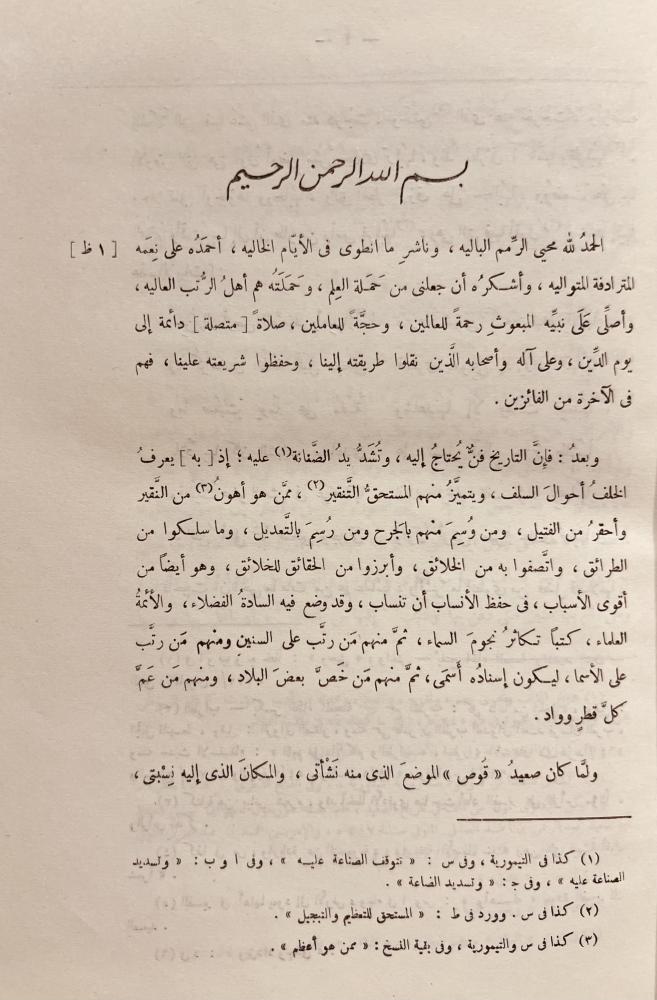 — ١ —
بسم الله الرحمن الرحيم
الحمدُ لله محيى الرِّمم الباليه ، وناشرِ ما انطوى فى الأيّام الخاليه ، أحمَدُه على نِعَمه [ ١ ظ ]
المترادفة المتواليه ، وأشكرُه أن جعلنى من حَمَلة العِلم ، وحَمَلَتُه هم أهلُ الرُّتب العاليه ،
وأصلِّى عَلَى نبيِّه المبعوثِ رحمةً للعالمين ، وحجَّةً للعاملين ، صلاةً [ متصلة ] دائمة إلى
يوم الدِّين ، وعلى آله وأصحابه الَّذين نقلوا طريقته إلينا ، وحفظوا شريعته علينا ، فهم
فى الآخرة من الفائزين .
وبعدُ : فإنَّ التاريخ فنٌّ يُحتاجُ إليه ، وتُشَدُّ يدُ الضَّنانة(١) عليه ؛ إذ [ به ] يعرفُ
الخلفُ أحوالَ السلف ، ويتميَّزُ منهم المستحقُّ التَّنقير(٢) ، ممَّن هو أهونُ(٣) من النَّقير
وأحقرُ من الفتيل ، ومن وُسِمَ منهم بالجرح ومن رُسِمَ بالتَّعديل ، وما سلكوا من
الطرائق ، واتَّصفوا به من الخلائق ، وأبرزوا من الحقائق للخلائق ، وهو أيضاً من
أقوى الأسباب ، فى حفظ الأنساب أن تنساب ، وقد وضع فيه السادةُ الفضلاء ، والأئمةُ
العلماء ، كتباً تكاثرُ نجومَ السماء ، ثمَّ منهم مَن رتَّب على السنين ومنهم مَن رتَّب
على الأسما ، ليكون إسنادُه أَسمَى ، ثمَّ منهم مَن خَصَّ بعضَ البلاد ، ومنهم مَن عَمَّ
كلَّ قطرٍ وواد .
ولمَّا كان صعيدُ « قُوص » الموضعَ الذى منه نَشْأتى ، والمكانَ الذى إليه نِسْبتى ،
(١) كذا فى التيمورية ، وفى س : « تتوقف الصناعة عليه » ، وفى ا و ب : « وتسديد
الصناعة عليه » ، وفى ج : « وتسديد الضاعة » .
(٢) كذا فى س . وورد فى ط : « المستحق للتعظيم والتبجيل » .
(٣) كذا فى س والتيمورية ، وفى بقية النسخ : « ممن هو أعظم » .